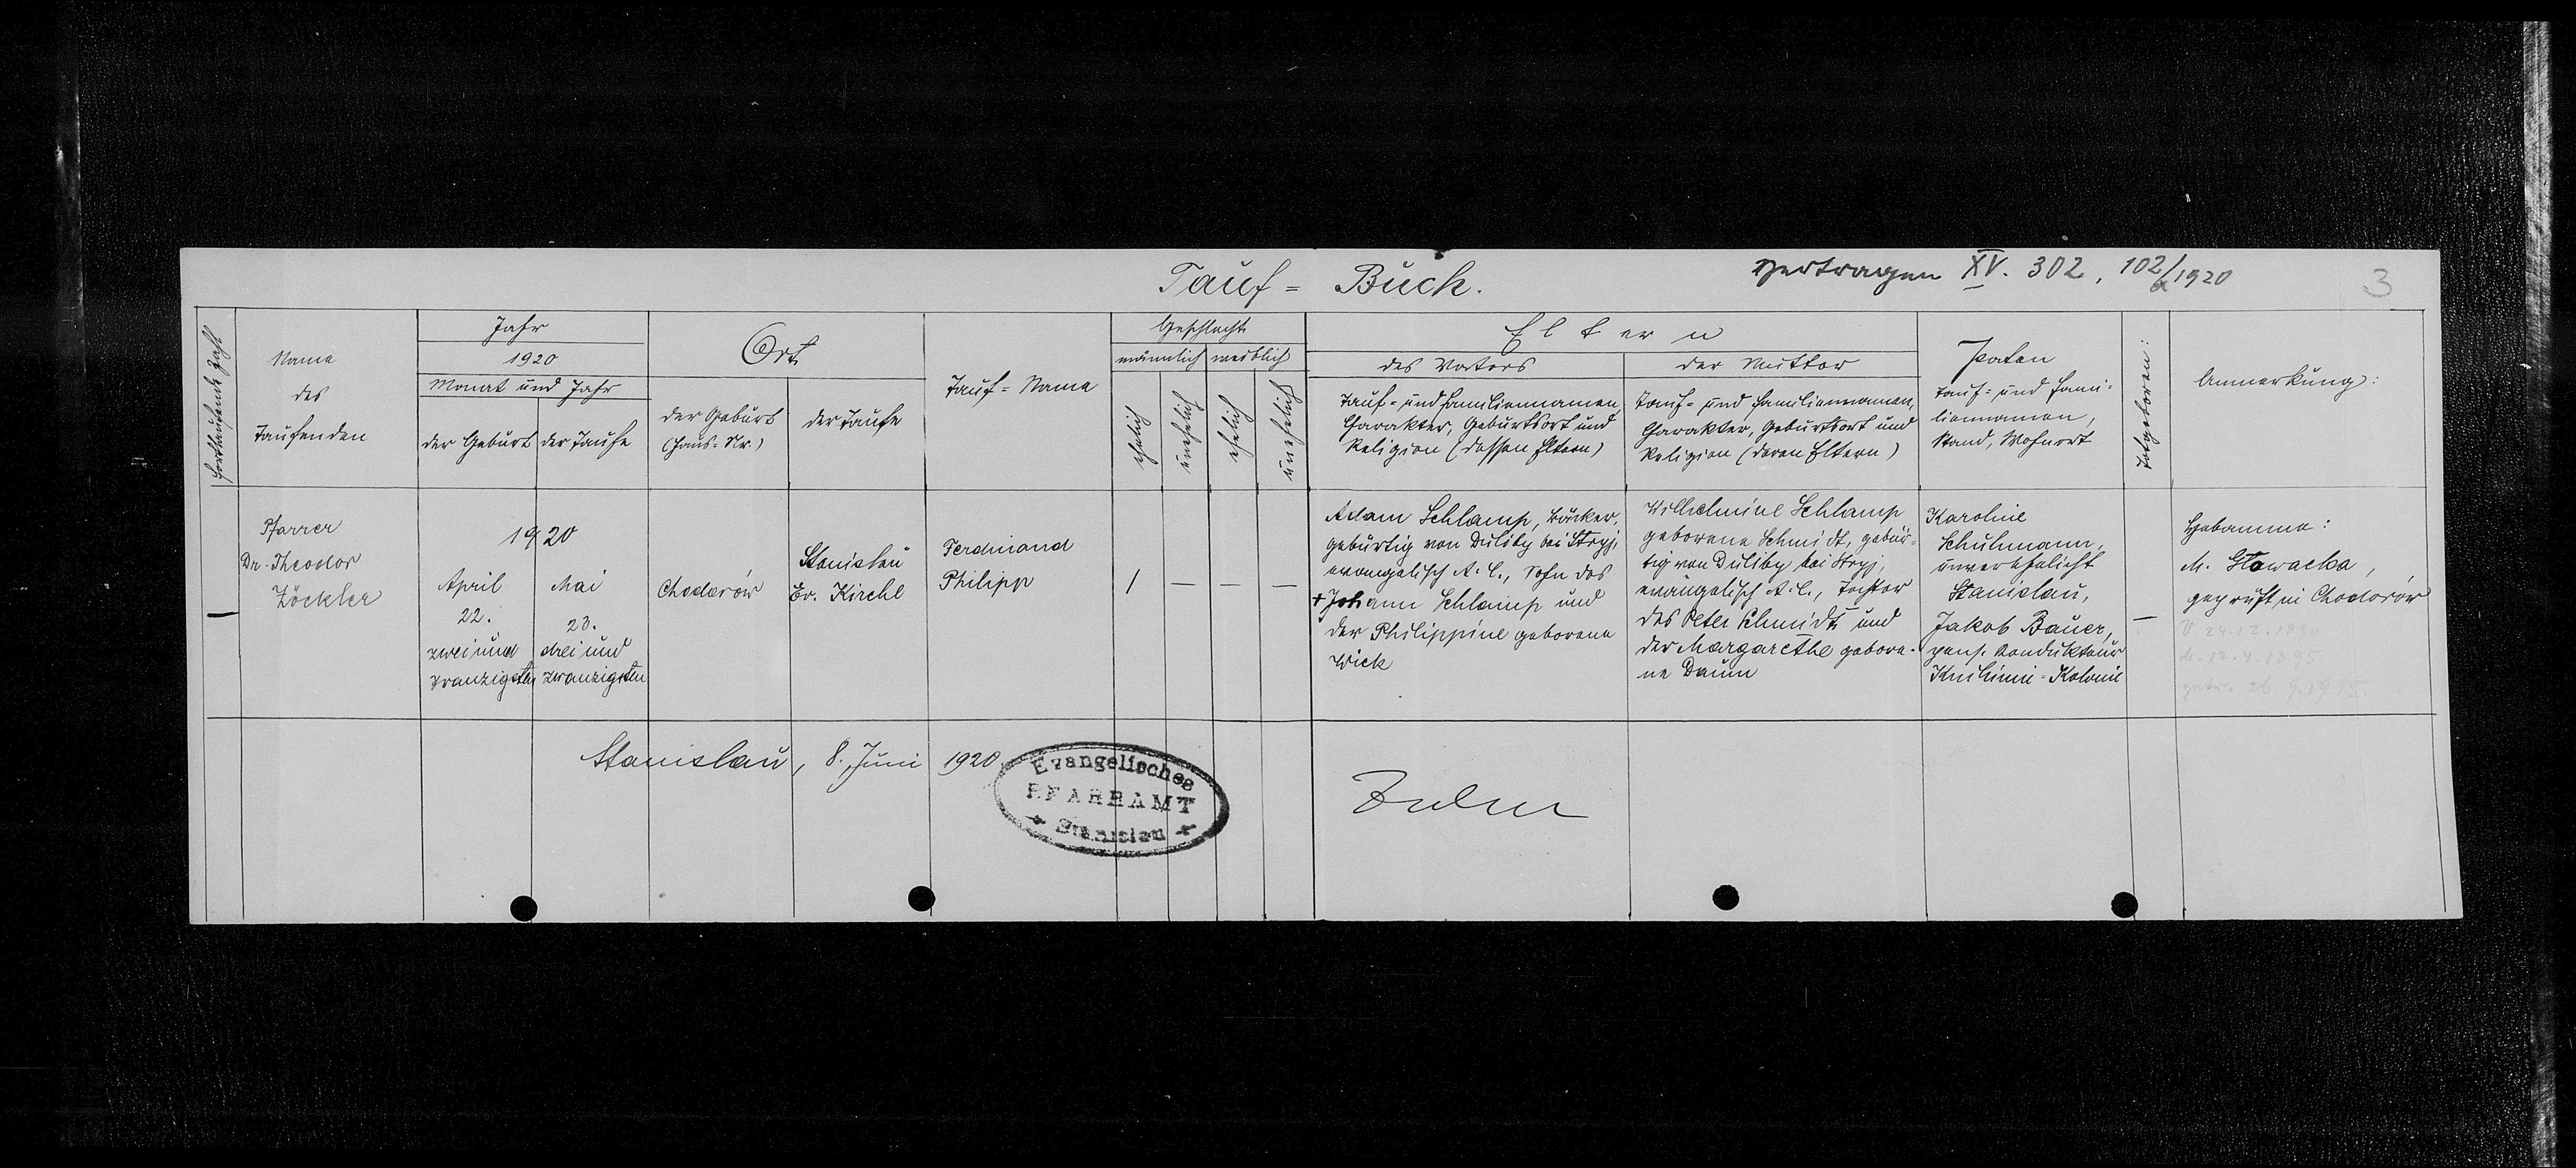 Tauf = Buch.
vertragen XV. 302, 102/1920
3
Fortlaufende Zahl
Name
des
Taufenden
Jahr
1920
Monat und Jahr
der Geburt
der Taufe
Ort
der Geburt
(Haus=Nr.)
der Taufe
Tauf=Name
Geschlecht
männlich
weiblich
ehelich
unehelich
ehelich
unehelich
Eltern
des Vaters
Tauf= und Familiennamen,
Charakter, Geburtsort und
Religion (dessen Eltern)
der Mutter
Tauf= und Familiennamen,
Charakter, Geburtsort und
Religion (deren Eltern)
Paten
Tauf= und Fami-
liennamen,
Stand, Wohnort
Totgeboren:
Anmerkung:
Pfarrer
Dr. Theodor
Zöckler
1920
April
22.
zweiund
zwanzigsten
Mai
23.
dreiund
zwanzigsten
Chodorów
Stanislau
Ev. Kirche
Ferdinand
Philipp
1
—
—
—
Adam Schlamp, Bäcker,
gebürtig von Duliby bei Stryj,
evangelisch A. C., Sohn des
+ Johann Schlamp und
der Philippine geborene
Wick
Wilhelmine Schlamp
geborene Schmidt, gebür=
tig von Duliby bei Stryj,
evangelisch A. C., Tochter
des Peter Schmidt und
der Margarethe gebore-
ne Daum
Karoline
Schuhmann,
unverehelicht
Stanislau,
Jakob Bauer,
pens. Kondukteur
Knihinin=Kolonie
—
Hebamme:
M. Słowacka,
geprüft in Chodorów
V. 24.12.
M. 12.4.1895
getr. 26.9.19
Stanislau, 8. Juni 1920
Evangelisches
PFARRAMT
Stanislau